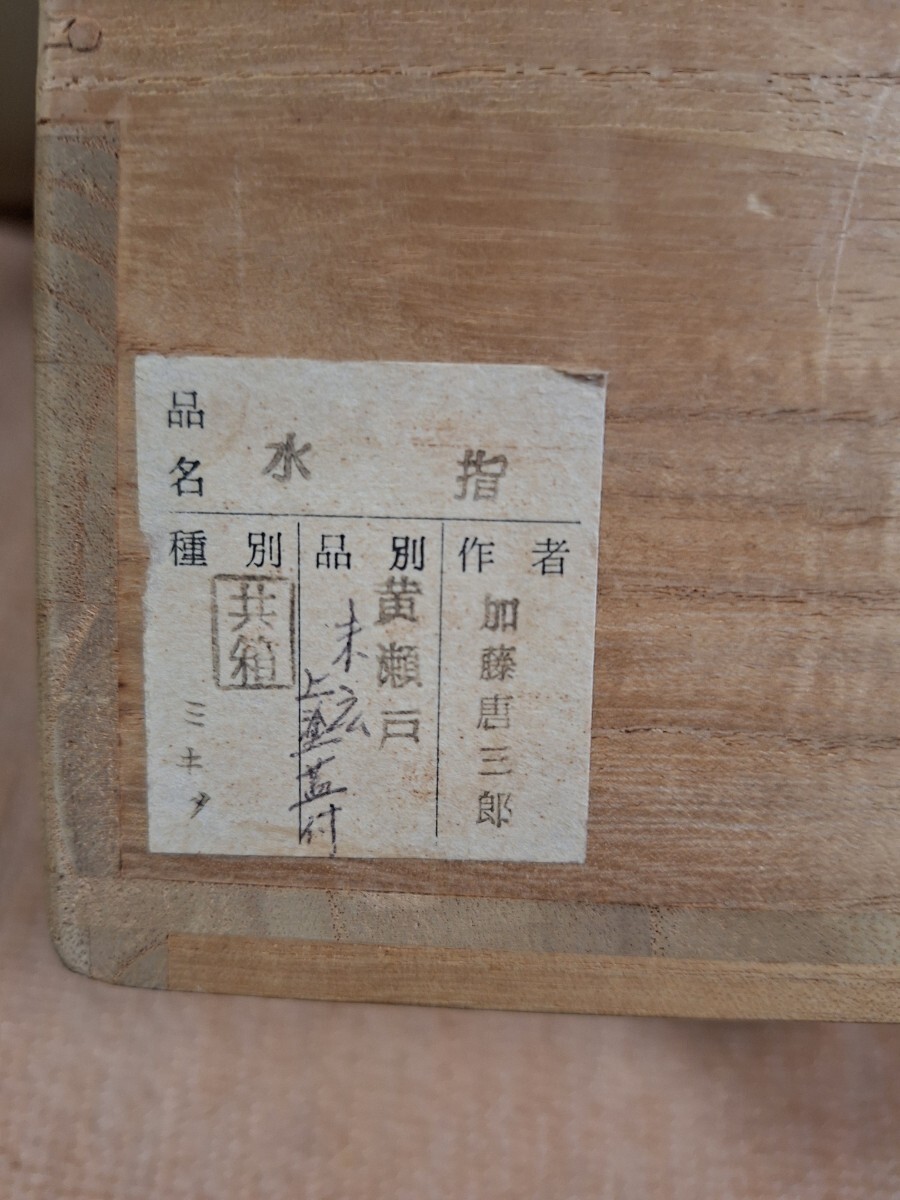 品名
水指
作者
加藤唐三郎
品別
黄瀬戸
上塗蓋付
種別
共箱
ミキタ